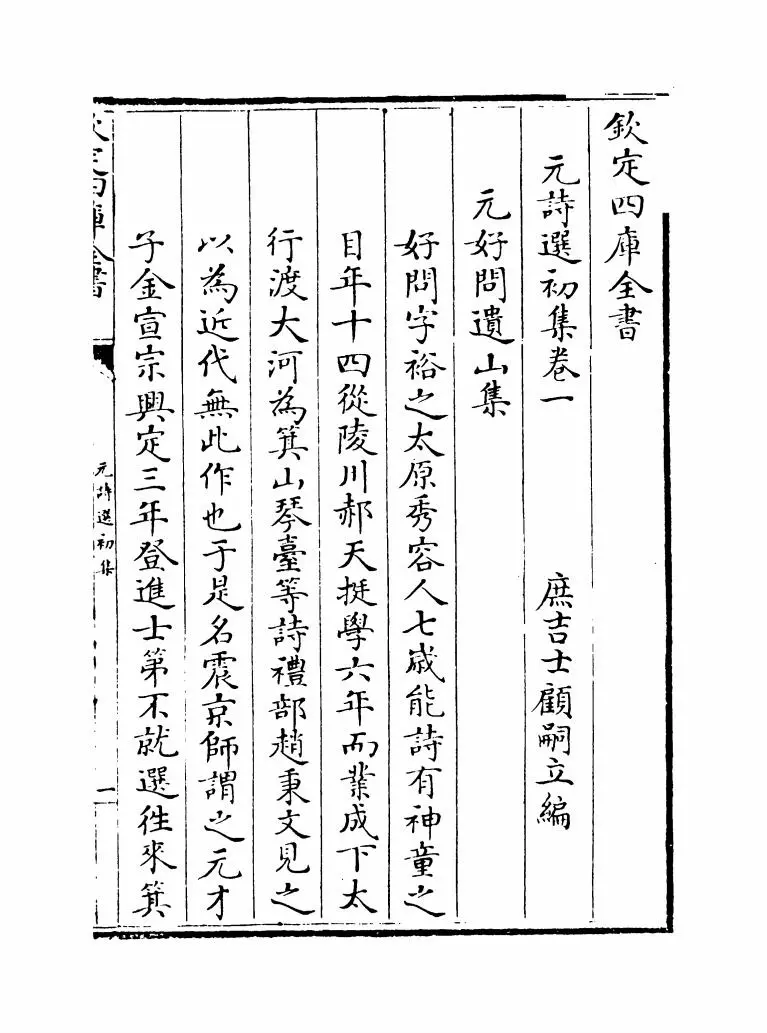 欽定四庫全書
元詩選初集卷一
庶吉士顧嗣立編
元好問遺山集
好問字裕之太原秀容人七歲能詩有神童之
目年十四從陵川郝天挺學六年而業成下太
行渡大河為箕山琴臺等詩禮部趙秉文見之
以為近代無此作也于是名震京師謂之元才
子金宣宗興定三年登進士第不就選徃來箕
欽定四庫全書
元詩選初集
一